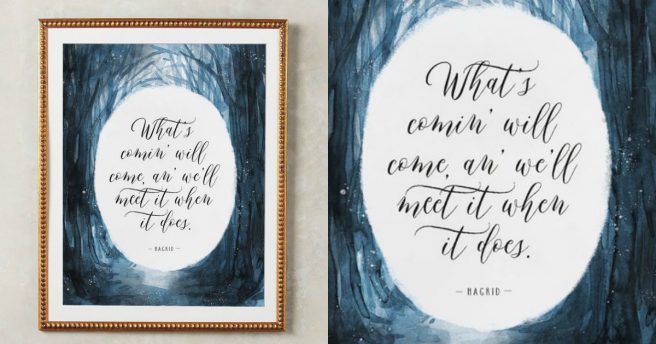 What's
comin' will
come, an' we'll
meet it when
it does.
— HAGRID —
What's
comin' will
come, an' we'll
meet it when
it does.
— HAGRID —